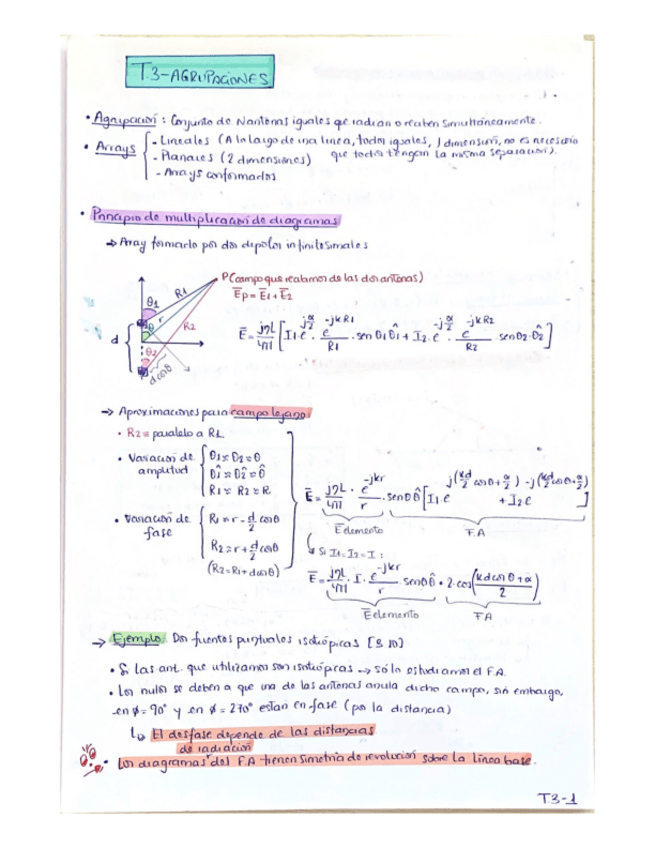 T.3-AGRUPACIONES
• Agrupación: Conjunto de Nantenas iguales que radian o reciben simultáneamente.
• Arrays
- Lineales (A lo largo de una línea, todos iguales, 1 dimensión, no es necesario
que todos tengan la misma separación).
- Planares (2 dimensiones)
- Arrays conformados
• Principio de multiplicación de diagramas
→ Array formado por dos dipolos infinitesimales
P (campo que recibimos de las dos antenas)
Ēp = Ē1 + Ē2
θ1 R1 r θ R2 d θ2 dcosθ
Ē = jηL/4π [I1·e^(jα/2) · e^(-jkR1)/R1 · senθ1 θ̂1 + I2·e^(-jα/2) · e^(-jkR2)/R2 senθ2·θ̂2]
→ Aproximaciones para campo lejano:
• R2 ≈ paralelo a R1
• Variación de amplitud
θ1 ≈ θ2 ≈ θ
θ̂1 ≈ θ̂2 ≈ θ̂
R1 ≈ R2 ≈ R
• Variación de fase
R1 = r - d/2 cosθ
R2 = r + d/2 cosθ
(R2 = R1 + dcosθ)
Ē = jηL/4π · e^(-jkr)/r · senθ θ̂ [I1 e^(j(kd/2 cosθ + α/2)) + I2 e^(-j(kd/2 cosθ + α/2))]
Ē elemento
F.A
Si I1 = I2 = I :
Ē = jηL/4π · I · e^(-jkr)/r · senθ θ̂ · 2·cos((kdcosθ + α)/2)
Ē elemento
FA
→ Ejemplo: Dos fuentes puntuales isotrópicas [3 10]
• Si las ant. que utilizamos son isotrópicas → sólo estudiamos el F.A.
• Los nulos se deben a que una de las antenas anula dicho campo, sin embargo,
en ϕ = 90° y en ϕ = 270° están en fase (por la distancia)
↳ El desfase depende de las distancias
de radiación
• Los diagramas del F.A tienen simetría de revolución sobre la línea base.
T3-1